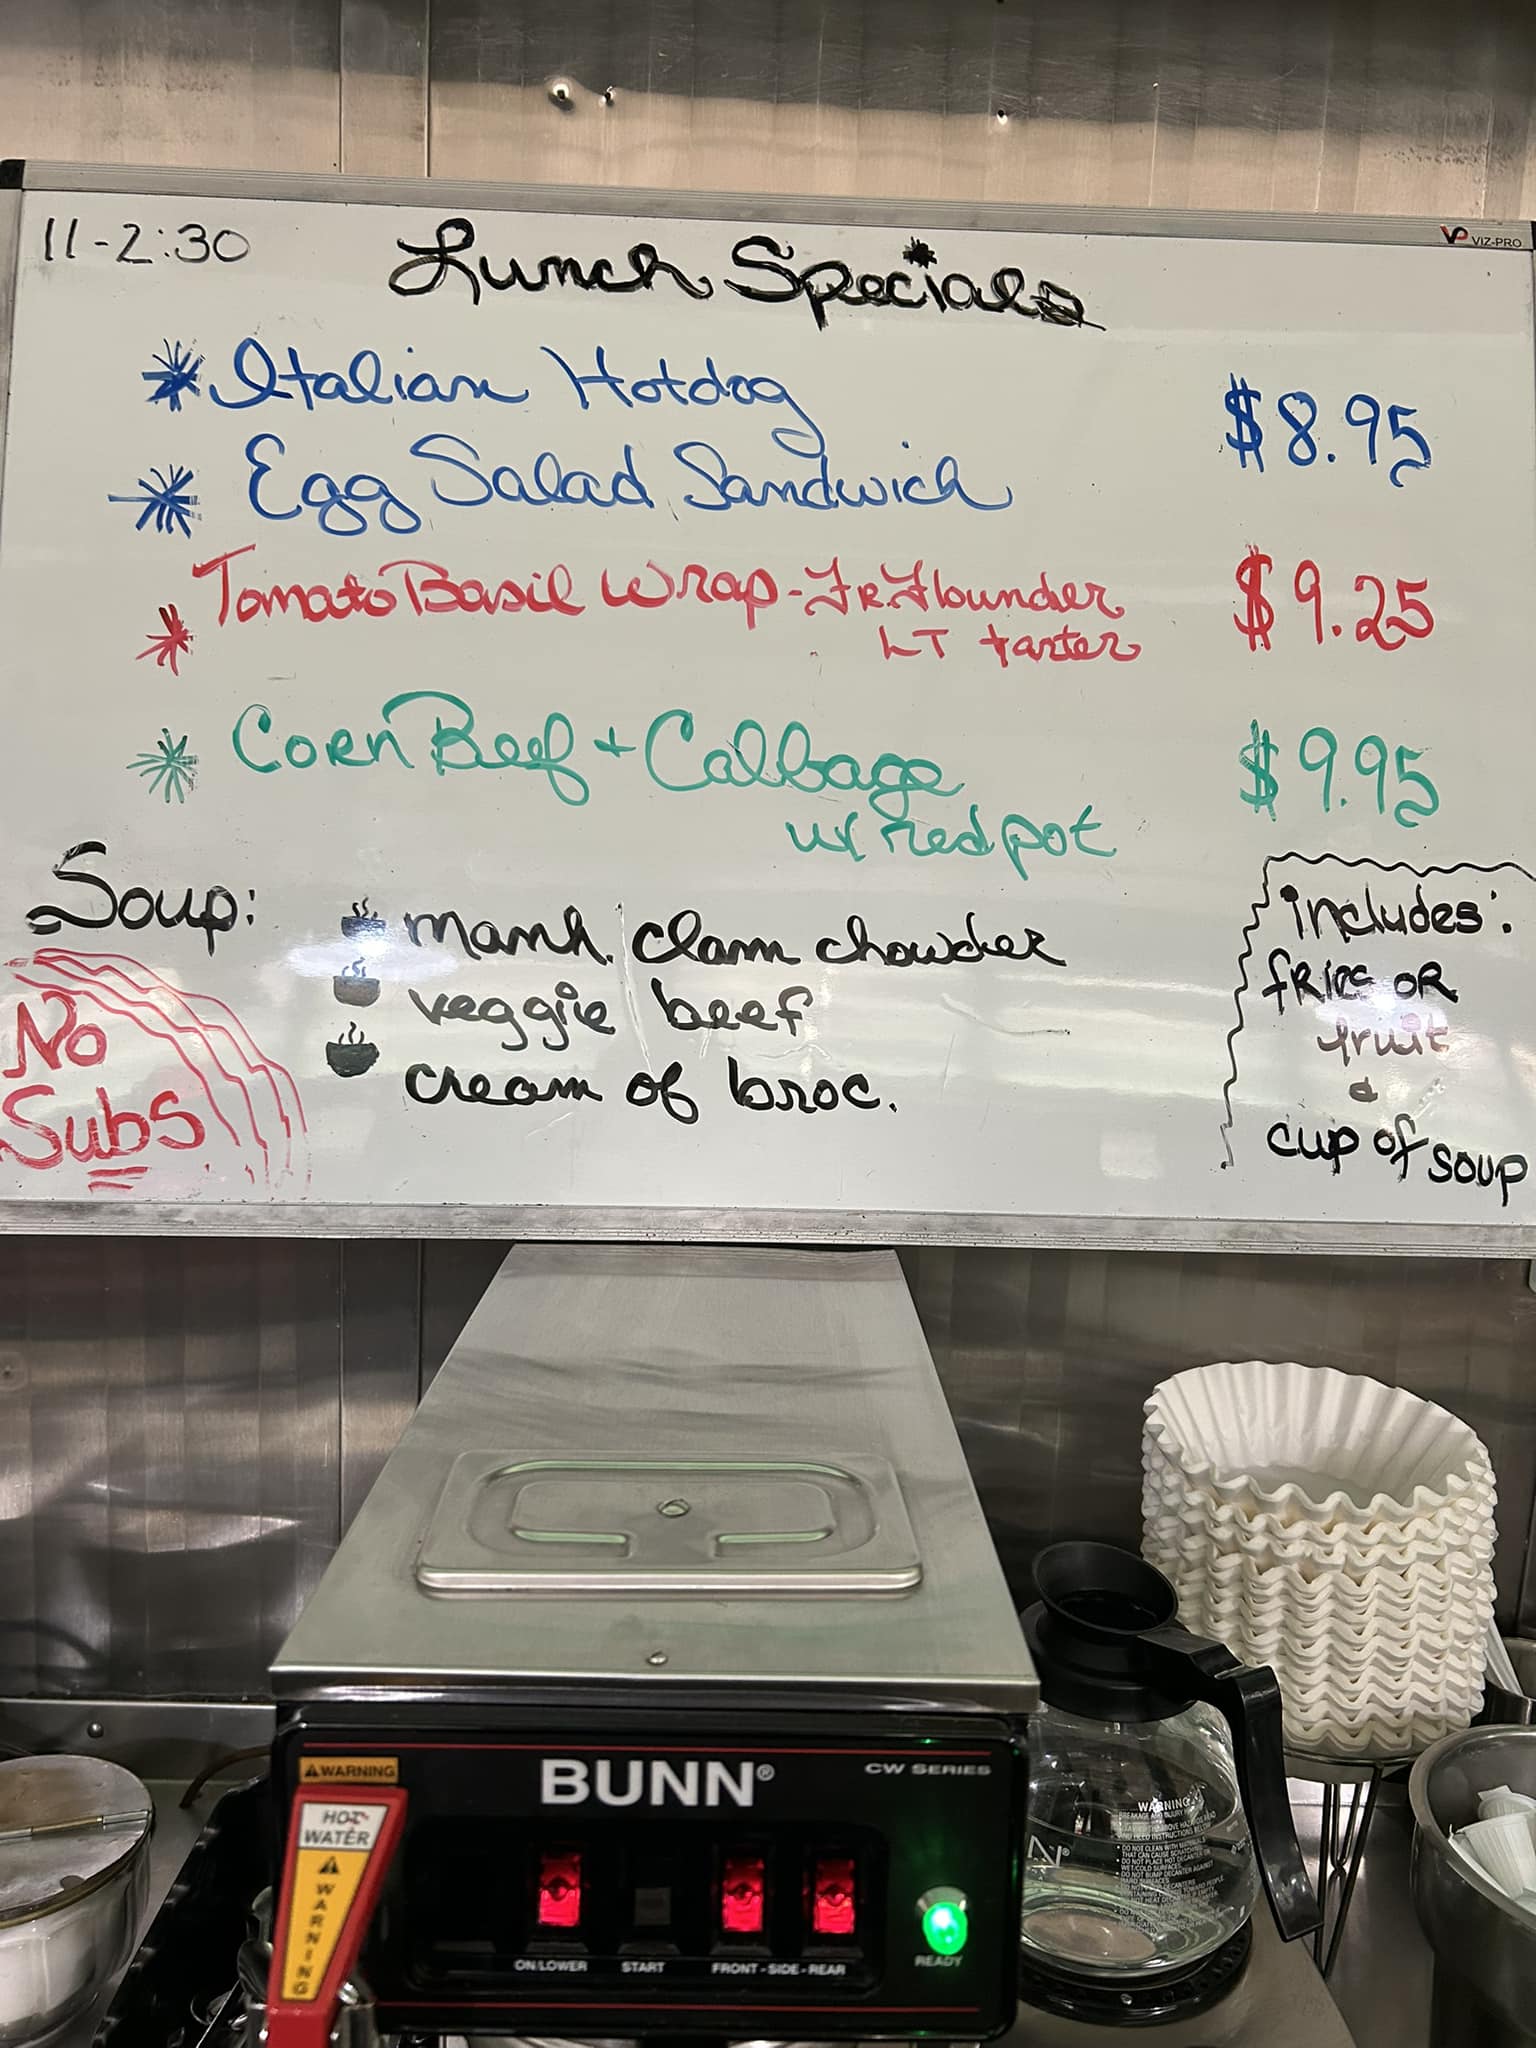 VIZ-PRO
11-2:30
Lunch Specials
Italian Hotdog
$8.95
Egg Salad Sandwich
Tomato Basil Wrap-Fr.Flounder
LT tarter
$9.25
Corn Beef + Cabbage
w/ red pot
$9.95
Soup:
manh. clam chowder
veggie beef
cream of broc.
No
Subs
includes:
fries OR
fruit
&
cup of soup
BUNN®
CW SERIES
WARNING
HOT
WATER
WARNING
ON/LOWER
START
FRONT - SIDE - REAR
READY
WARNING